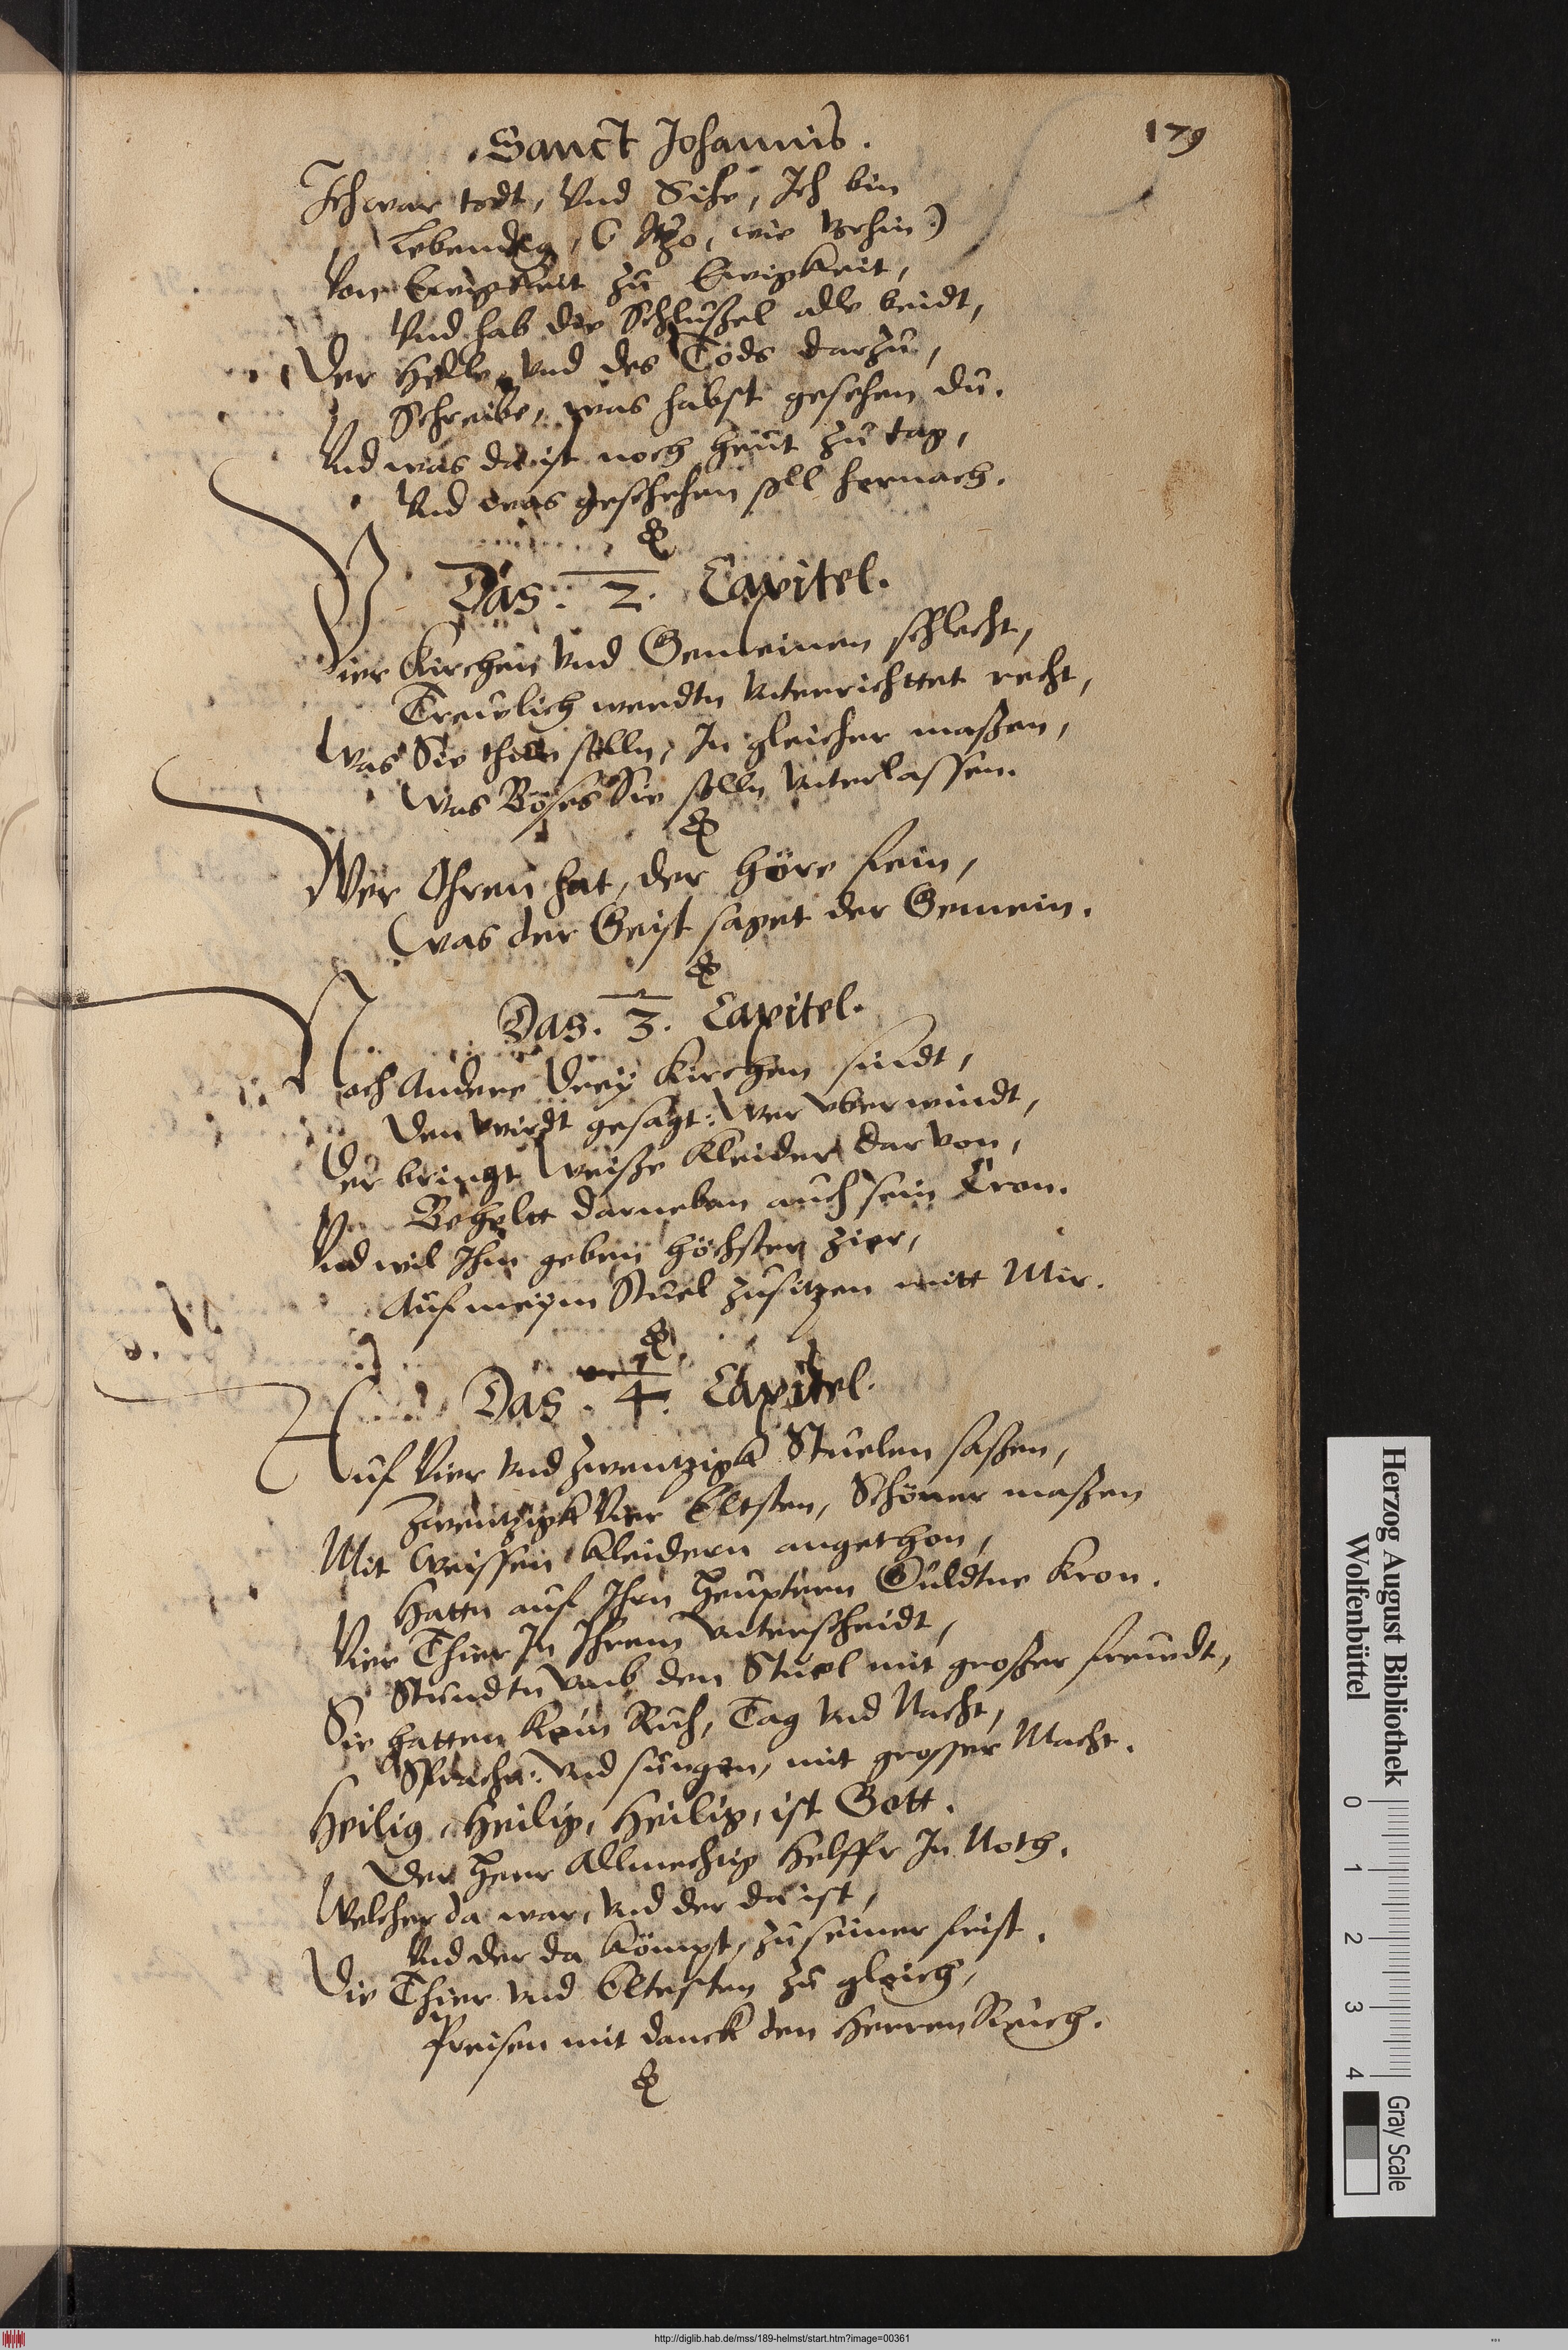 Sanct Johannis.
179
Ich war todt, Vnd Sihe, Ich bin
Lebendig, ( Itzo, wie vorhin)
Von Ewigkeit zu Ewigkeit,
Vnd hab die Schlußel alle beidt,
Der Helle, vnd des Tods darzu,
Schreibe, was habst gesehen du.
Vnd was da ist noch heut zu tag,
Vnd was geschehen soll hernach.
Das. 2. Capitel.
Vier Kirchen vnd Gemeinen schlecht,
Treulich werdtn vnterrichttet recht,
Was Sie thun solln, In gleicher maßen,
Was Böses Sie solln vnterlassen.
Wer Ohren hat, der höre fein,
Was der Geist saget der Gemein.
Das. 3. Capitel.
Noch Andere Drey Kirchen sindt,
Den wirdt gesagt: Wer vberwindt,
Der bringt Weiße Kleider darvon,
Beheltt darneben auch sein Cron.
Vnd wil Ihm geben höchster zier,
Auf meinem Stuel zusitzen mitt Mir.
Das. 4. Capitel.
Auf Vier vnd zwentzigk Stuelen saßen,
Zwentzigk Vier Eltsten, Schöner maßen
Mit Weissen Kleidern angethon,
Hattn auf Ihrn Heuptern Guldtne Kron.
Vier Thier In Ihrem vnterscheidt,
Stundtn vmb den Stuel mit großer freudt,
Sie hatten Kein Ruh, Tag vnd Nacht,
Sprachn: vnd sungen, mit grosser Macht.
Heilig, Heilig, Heilig, ist Gott.
Der Herr Allmechtig Helffr In Noth.
Welcher da war, vnd der da ist,
Vnd der da kömpt, zu seiner frist.
Die Thier vnd Eltesten zu gleich,
Preisen mit danck den Herren Reich.
Herzog August Bibliothek
Wolfenbüttel
0 1 2 3 4
Gray Scale
http://diglib.hab.de/mss/189-helmst/start.htm?image=00361